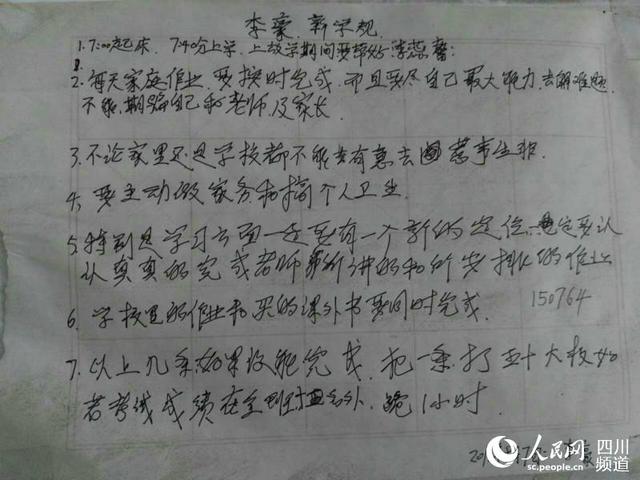 李豪 新家规
1. 7:00起床. 7:40分上学. 上放学期间要带好李蕊馨:
2. 每天家庭作业. 要按时完成. 而且要尽自己最大能力. 去解难题
不能.期骗自己和老师.及家长.
3. 不论家里还是学校都不能去有意去 惹事生非.
4. 要主动做家务和搞个人卫生.
5. 特别是学习方面一定要有一个新的定位. 一定要认
认真真的完成老师 所讲的和所安排的作业
6. 学校里的作业和买的课外书要同时完成.
150764
7. 以上几条如果没能完成. 把一条打五十大板如
若考试成绩在全班 名外. 跪1小时.
人民网 四川频道
sc.people.com.cn